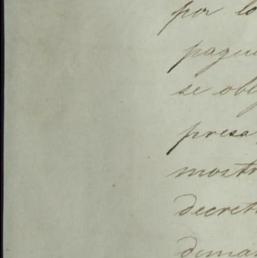 por lo
pague
se obl
presa
mostr
decret
deman